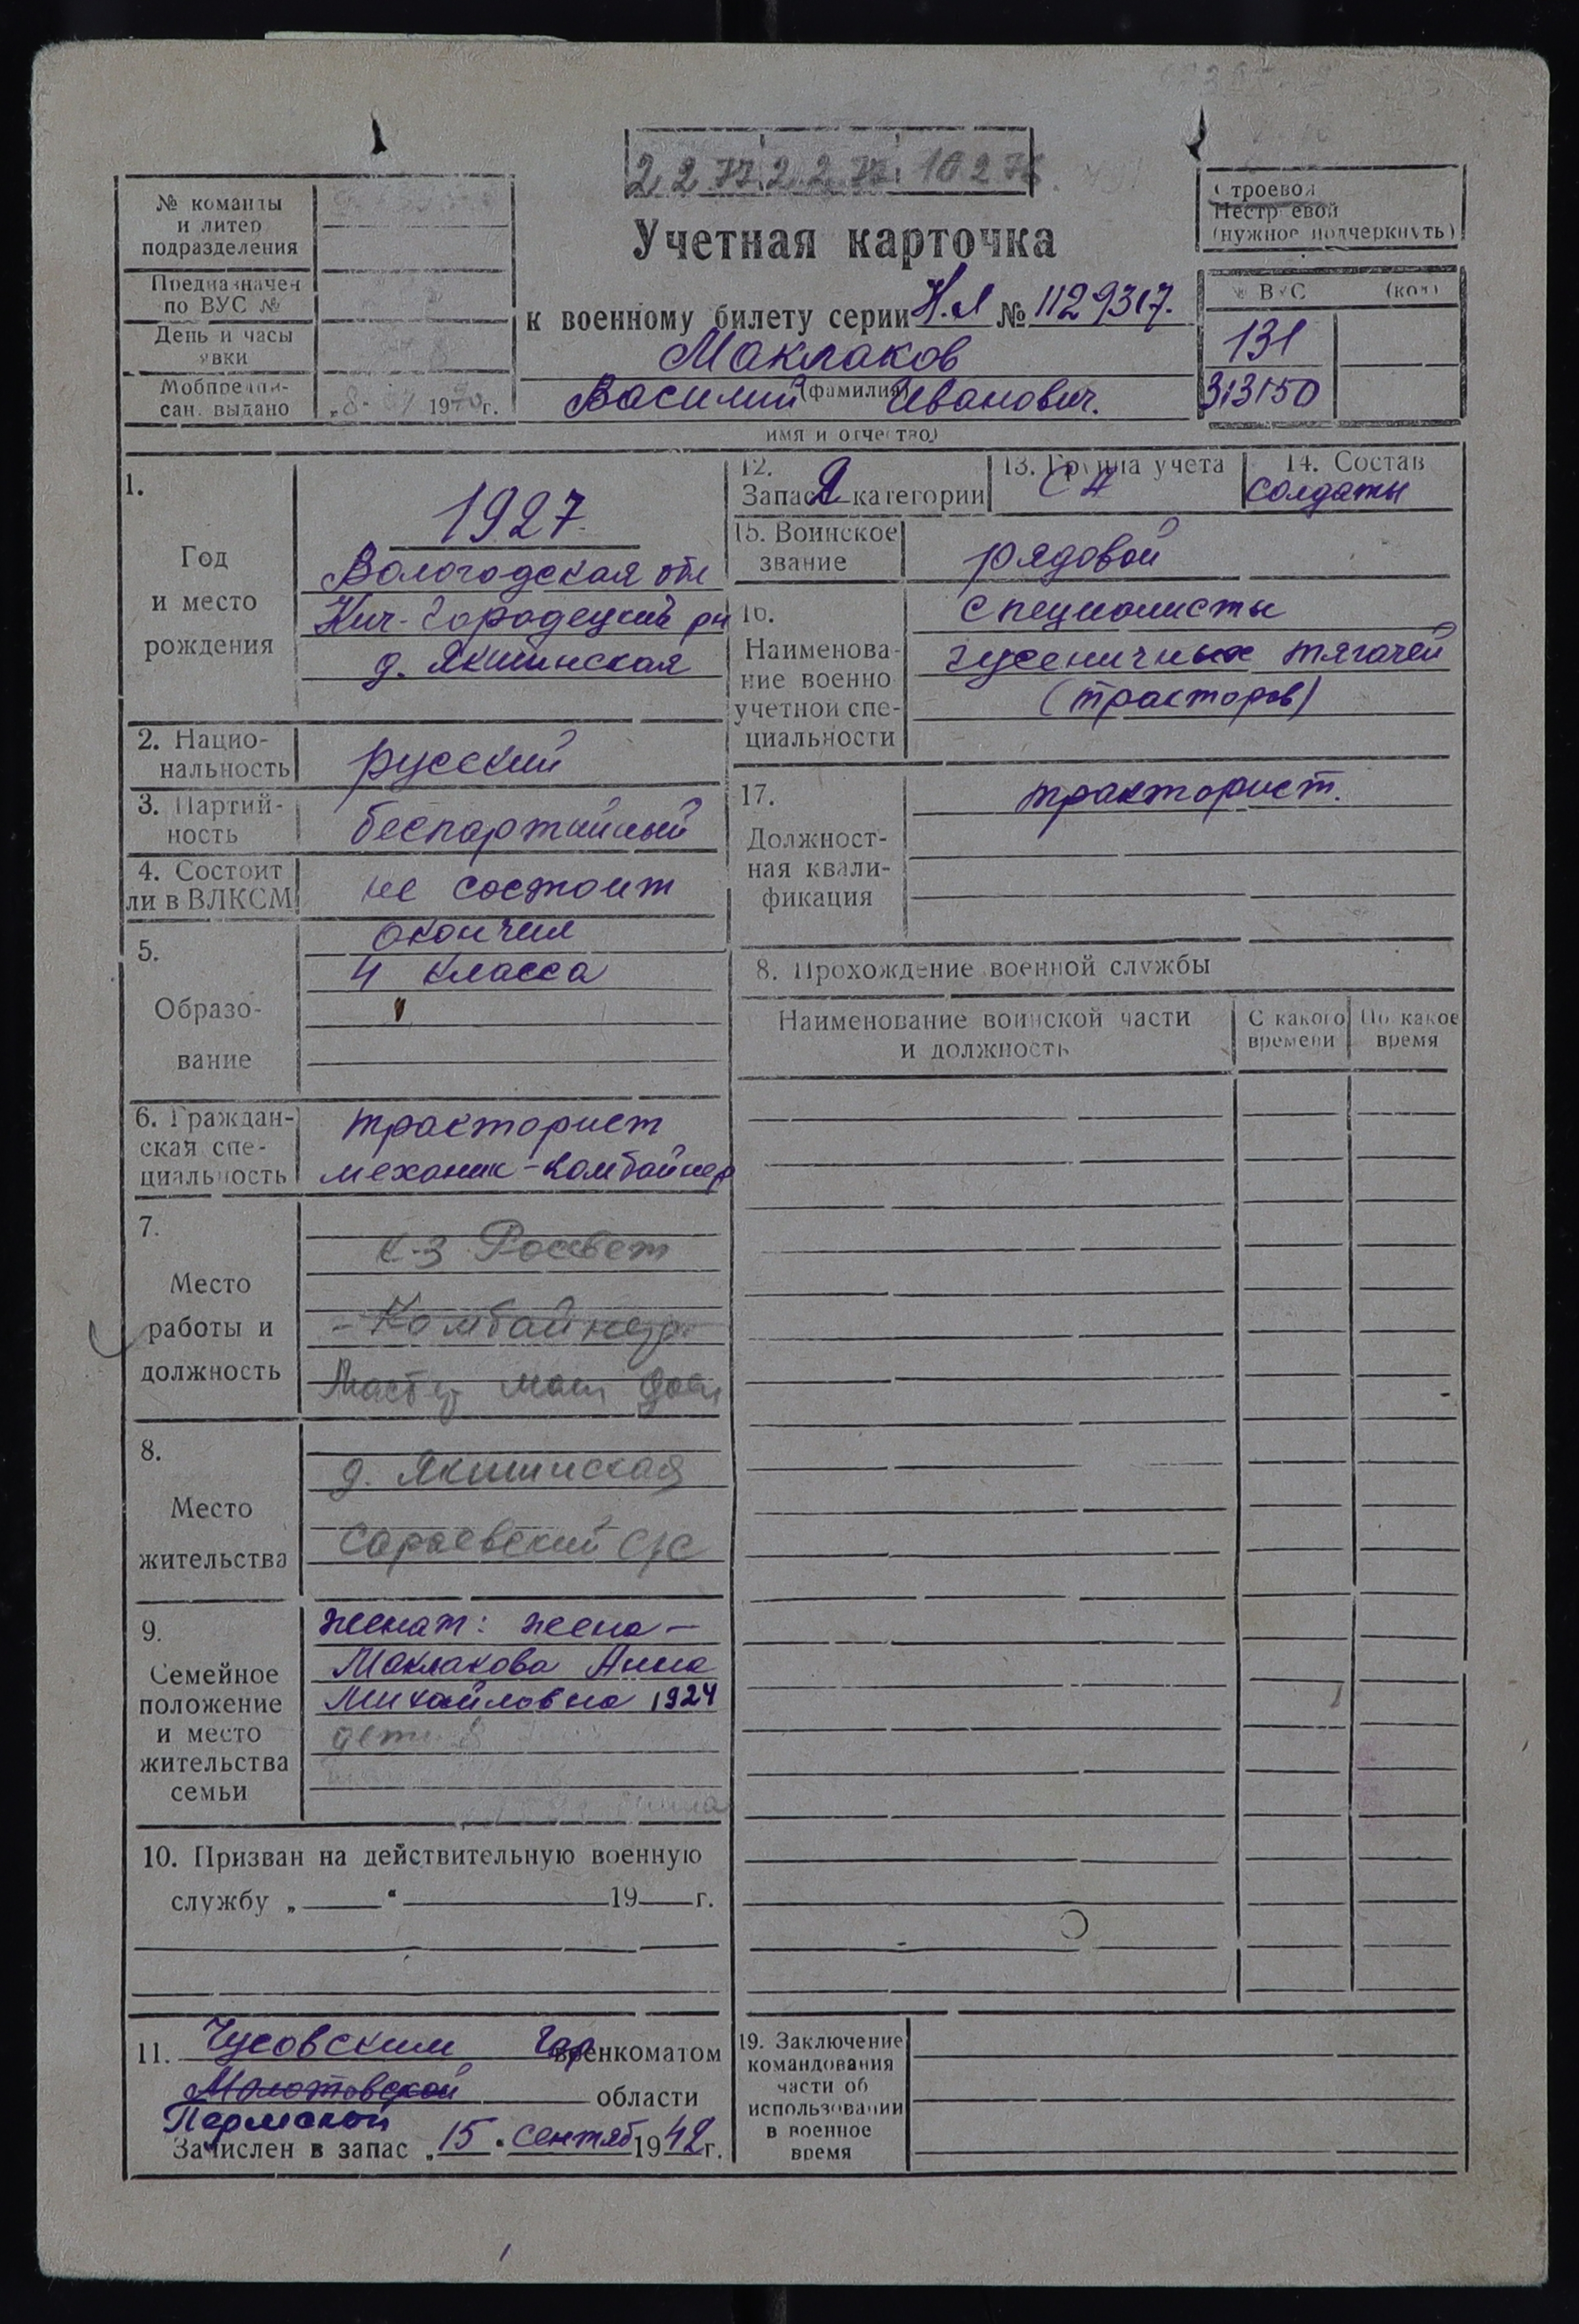 2 2 77. 2 2 77. 10 2 78.
№ команды
и литер
подразделения
Предназначен
по ВУС №
День и часы
явки
Мобпредпи-
сан. выдано
1970г.
Учетная карточка
к военному билету серии Н.Я № 1129317.
Маклаков
(фамилия)
Василий Иванович.
имя и отчество)
Строевой
Нестроевой
(нужное подчеркнуть)
№ ВУС (код)
131
313150
1.
Год
и место
рождения
1927
Вологодская обл
Кич-Городецкий рн
д. Якшинская
2. Нацио-
нальность
русский
3. Партий-
ность
беспартийный
4. Состоит
ли в ВЛКСМ
не состоит
5.
Образо-
вание
окончил
4 класса
6. Граждан-
ская спе-
циальность
тракторист
механик-комбайнер
7.
Место
работы и
должность
к-з Россвет
- Комбайнер.
Мастер маш доен
8.
Место
жительства
д. Якшинская
Сараевский с/с
9.
Семейное
положение
и место
жительства
семьи
женат: жена —
Маклакова Анна
Михайловна 1924
дети
10. Призван на действительную военную
службу „ “ 19 г.
11. Чусовским Гор военкоматом
Молотовской области
Пермской
Зачислен в запас „15“ сентяб 1949г.
12.
Запас 2 категории
13. Группа учета
СА
14. Состав
солдаты
15. Воинское
звание
рядовой
16.
Наименова-
ние военно
учетной спе-
циальности
специалисты
гусеничных тягачей
(тракторов)
17.
Должност-
ная квали-
фикация
тракторист.
8. Прохождение военной службы
Наименование воинской части
и должность
С какого
времени
По какое
время
19. Заключение
командования
части об
использовании
в военное
время